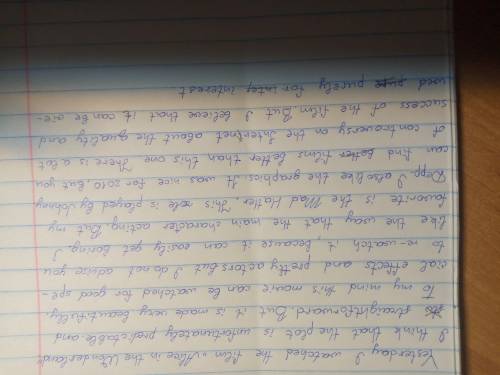 Yesterday I watched the film „Alice in the Wonderland"
I think that the plot is unfortunately predictable and
straightforward. But, it is made very beautifully.
To my mind this movie can be watched for good spe-
cial effects and pretty actors. But I do not advice you
to re-watch it because it can easily get boring. I
like the way that the main character acting. But my
favorite is the Mad Hatter. This role is played by Johnny
Depp. I also like the graphics. It was nice for 2010, but you
can find better films better than this one. There is a lot
of controversy on the Internet about the quality and
success of the film. But I believe that it can be re-
used purely for interest.